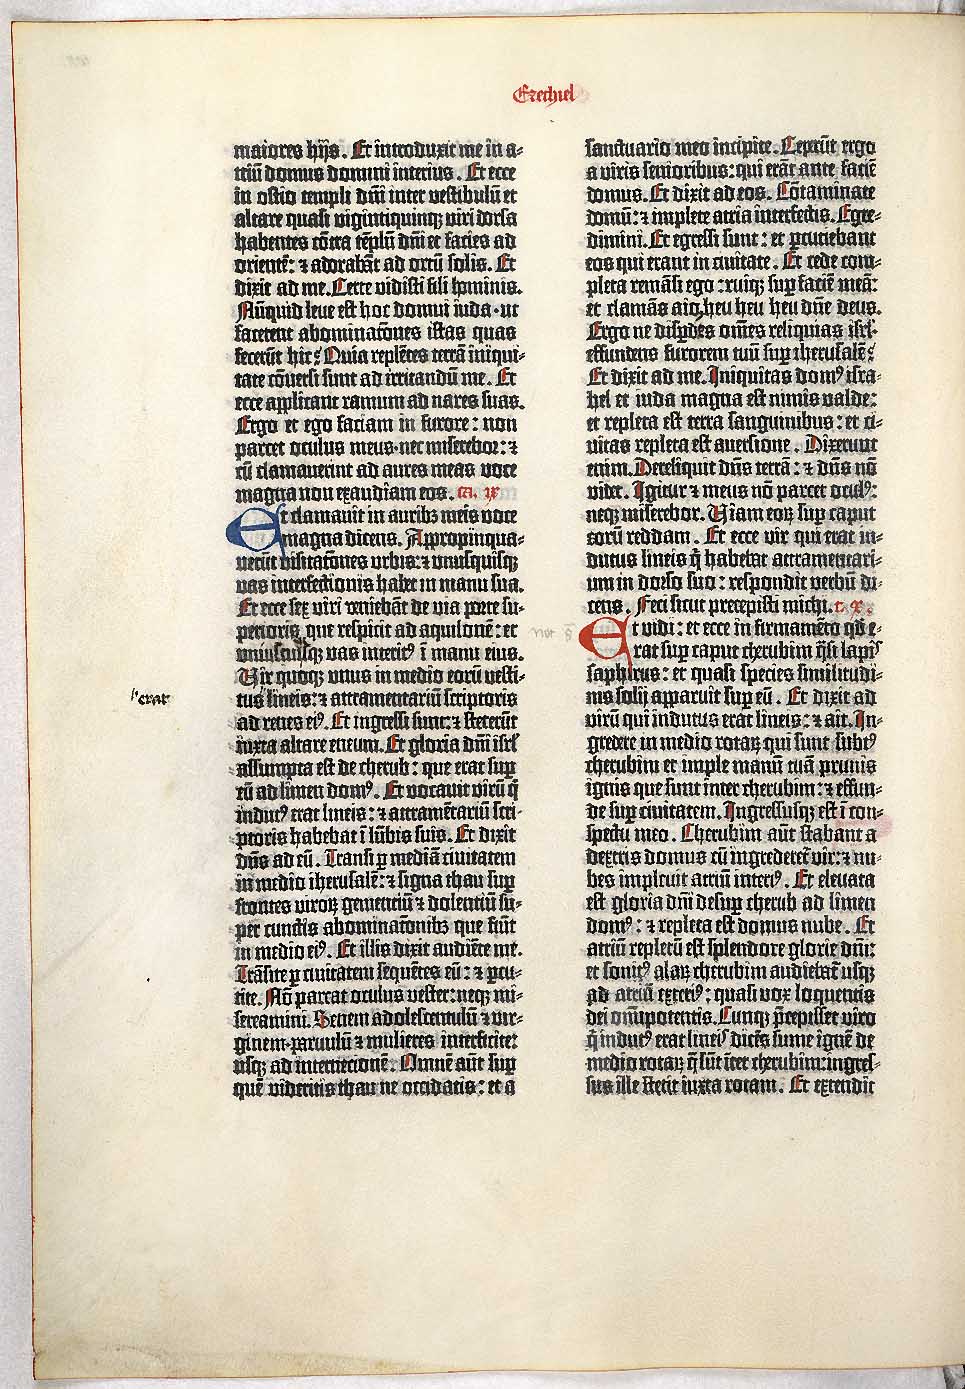 Ezechiel
maiores hijs. Et introduxit me in a-
triū domus domini interius. Et ecce
in ostio templi dn̄i inter vestibulū et
altare quasi vigintiquinqꝫ viri dorsa
habentes cōtra tēplū dn̄i et facies ad
orientē: ⁊ adorabāt ad ortū solis. Et
dixit ad me. Certe vidisti fili hominis.
Nūquid leue est hoc domui iuda·ut
facerent abominatōnes istas quas
fecerūt hic? Quia replētes terrā iniqui-
tate cōuersi sunt ad irritandū me. Et
ecce applicant ramum ad nares suas.
Ergo et ego faciam in furore: non
parcet oculus meus·nec miserebor: ⁊
cū clamauerint ad aures meas voce
magna non exaudiam eos. ca. ix
Et clamauit in auribꝫ meis voce
magna dicens. Appropinqua-
uerūt visitatōnes urbis: ⁊ unusquisqꝫ
vas interfectionis habet in manu sua.
Et ecce sex viri veniebāt de via porte su-
perioris que respicit ad aquilonē: et
uniuscuiusqꝫ vas interitꝰ ī manu eius.
Vir quoqꝫ unus in medio eorū vesti-
tus lineis: ⁊ attramentariū scriptoris
erat
ad renes eiꝰ. Et ingressi sunt: ⁊ steterūt
iuxta altare eneum. Et gloria dn̄i isrl̄
assumpta est de cherub: que erat suꝑ
eū ad limen domꝰ. Et vocauit virū q̄
indutꝰ erat lineis: ⁊ attramētariū scri-
ptoris habebat ī lūbis suis. Et dixit
dn̄s ad eū. Transi ꝑ mediā ciuitatem
in medio iherusalē: ⁊ signa thau suꝑ
frontes viroꝝ gementiū ⁊ dolentiū su-
per cunctis abominatōnibꝫ que fiūt
in medio eiꝰ. Et illis dixit audiēte me.
Trāsite ꝑ ciuitatem sequētes eū: ⁊ ꝑcu-
tite. Nō parcat oculus vester: neqꝫ mi-
sereamini. Senem adolescentulū ⁊ vir-
ginem·paruulū ⁊ mulieres interficite:
usqꝫ ad internecionē. Omnē aūt suꝑ
quē videritis thau ne occidatis: et a
sanctuario meo incipite. Ceperūt ergo
a viris senioribus: qui erāt ante faciē
domus. Et dixit ad eos. Cōtaminate
domū: ⁊ implete atria interfectis. Egre-
dimini. Et egressi sunt: et ꝑcutiebant
eos qui erant in ciuitate. Et cede com-
pleta remāsi ego: ruiqꝫ suꝑ faciē meā:
et clamās aio, heu heu heu dn̄e deus.
Ergo ne disꝑdes om̄es reliquias isrl̄·
effundens furorem tuū suꝑ iherusalē?
Et dixit ad me. Iniquitas domꝰ isra-
hel et iuda magna est nimis valde:
et repleta est terra sanguinibus: et ci-
uitas repleta est auersione. Dixerunt
enim. Dereliquit dn̄s terrā: ⁊ dn̄s nō
videt. Igitur ⁊ meus nō parcet oculꝰ:
neqꝫ miserebor. Viam eoꝝ suꝑ caput
eorū reddam. Et ecce vir qui erat in-
dutus lineis q̄ habebat attramentari-
um in dorso suo: respondit verbū di-
cens. Feci sicut precepisti michi. c. x.
Et vidi: et ecce in firmamēto qd̄ e-
rat suꝑ caput cherubim q̄si lapis
saphirus: et quasi species similitudi-
nis solij apparuit suꝑ eū. Et dixit ad
virū qui indutus erat lineis: ⁊ ait. In-
gredere in medio rotaꝝ qui sunt subtꝰ
cherubim et imple manū tuā prunis
ignis que sunt inter cherubim: ⁊ effun-
de suꝑ ciuitatem. Ingressusqꝫ est ī con-
spectu meo. Cherubim aūt stabant a
dextris domus cū ingrederet᷑ vir: ⁊ nu-
bes impleuit atriū interiꝰ. Et eleuata
est gloria dn̄i desuꝑ cherub ad limen
domꝰ: ⁊ repleta est domus nube. Et
atriū repletū est splendore glorie dn̄i:
et sonitꝰ alaꝝ cherubim audiebat᷑ usqꝫ
ad atriū exteriꝰ: quasi vox loquentis
dei om̄ipotentis. Cunqꝫ p̄cepisset viro
q̄ indutꝰ erat lineis dicēs sume ignē de
medio rotaꝝ q̄ sūt īter cherubim: ingres-
sus ille stetit iuxta rotam. Et extendit